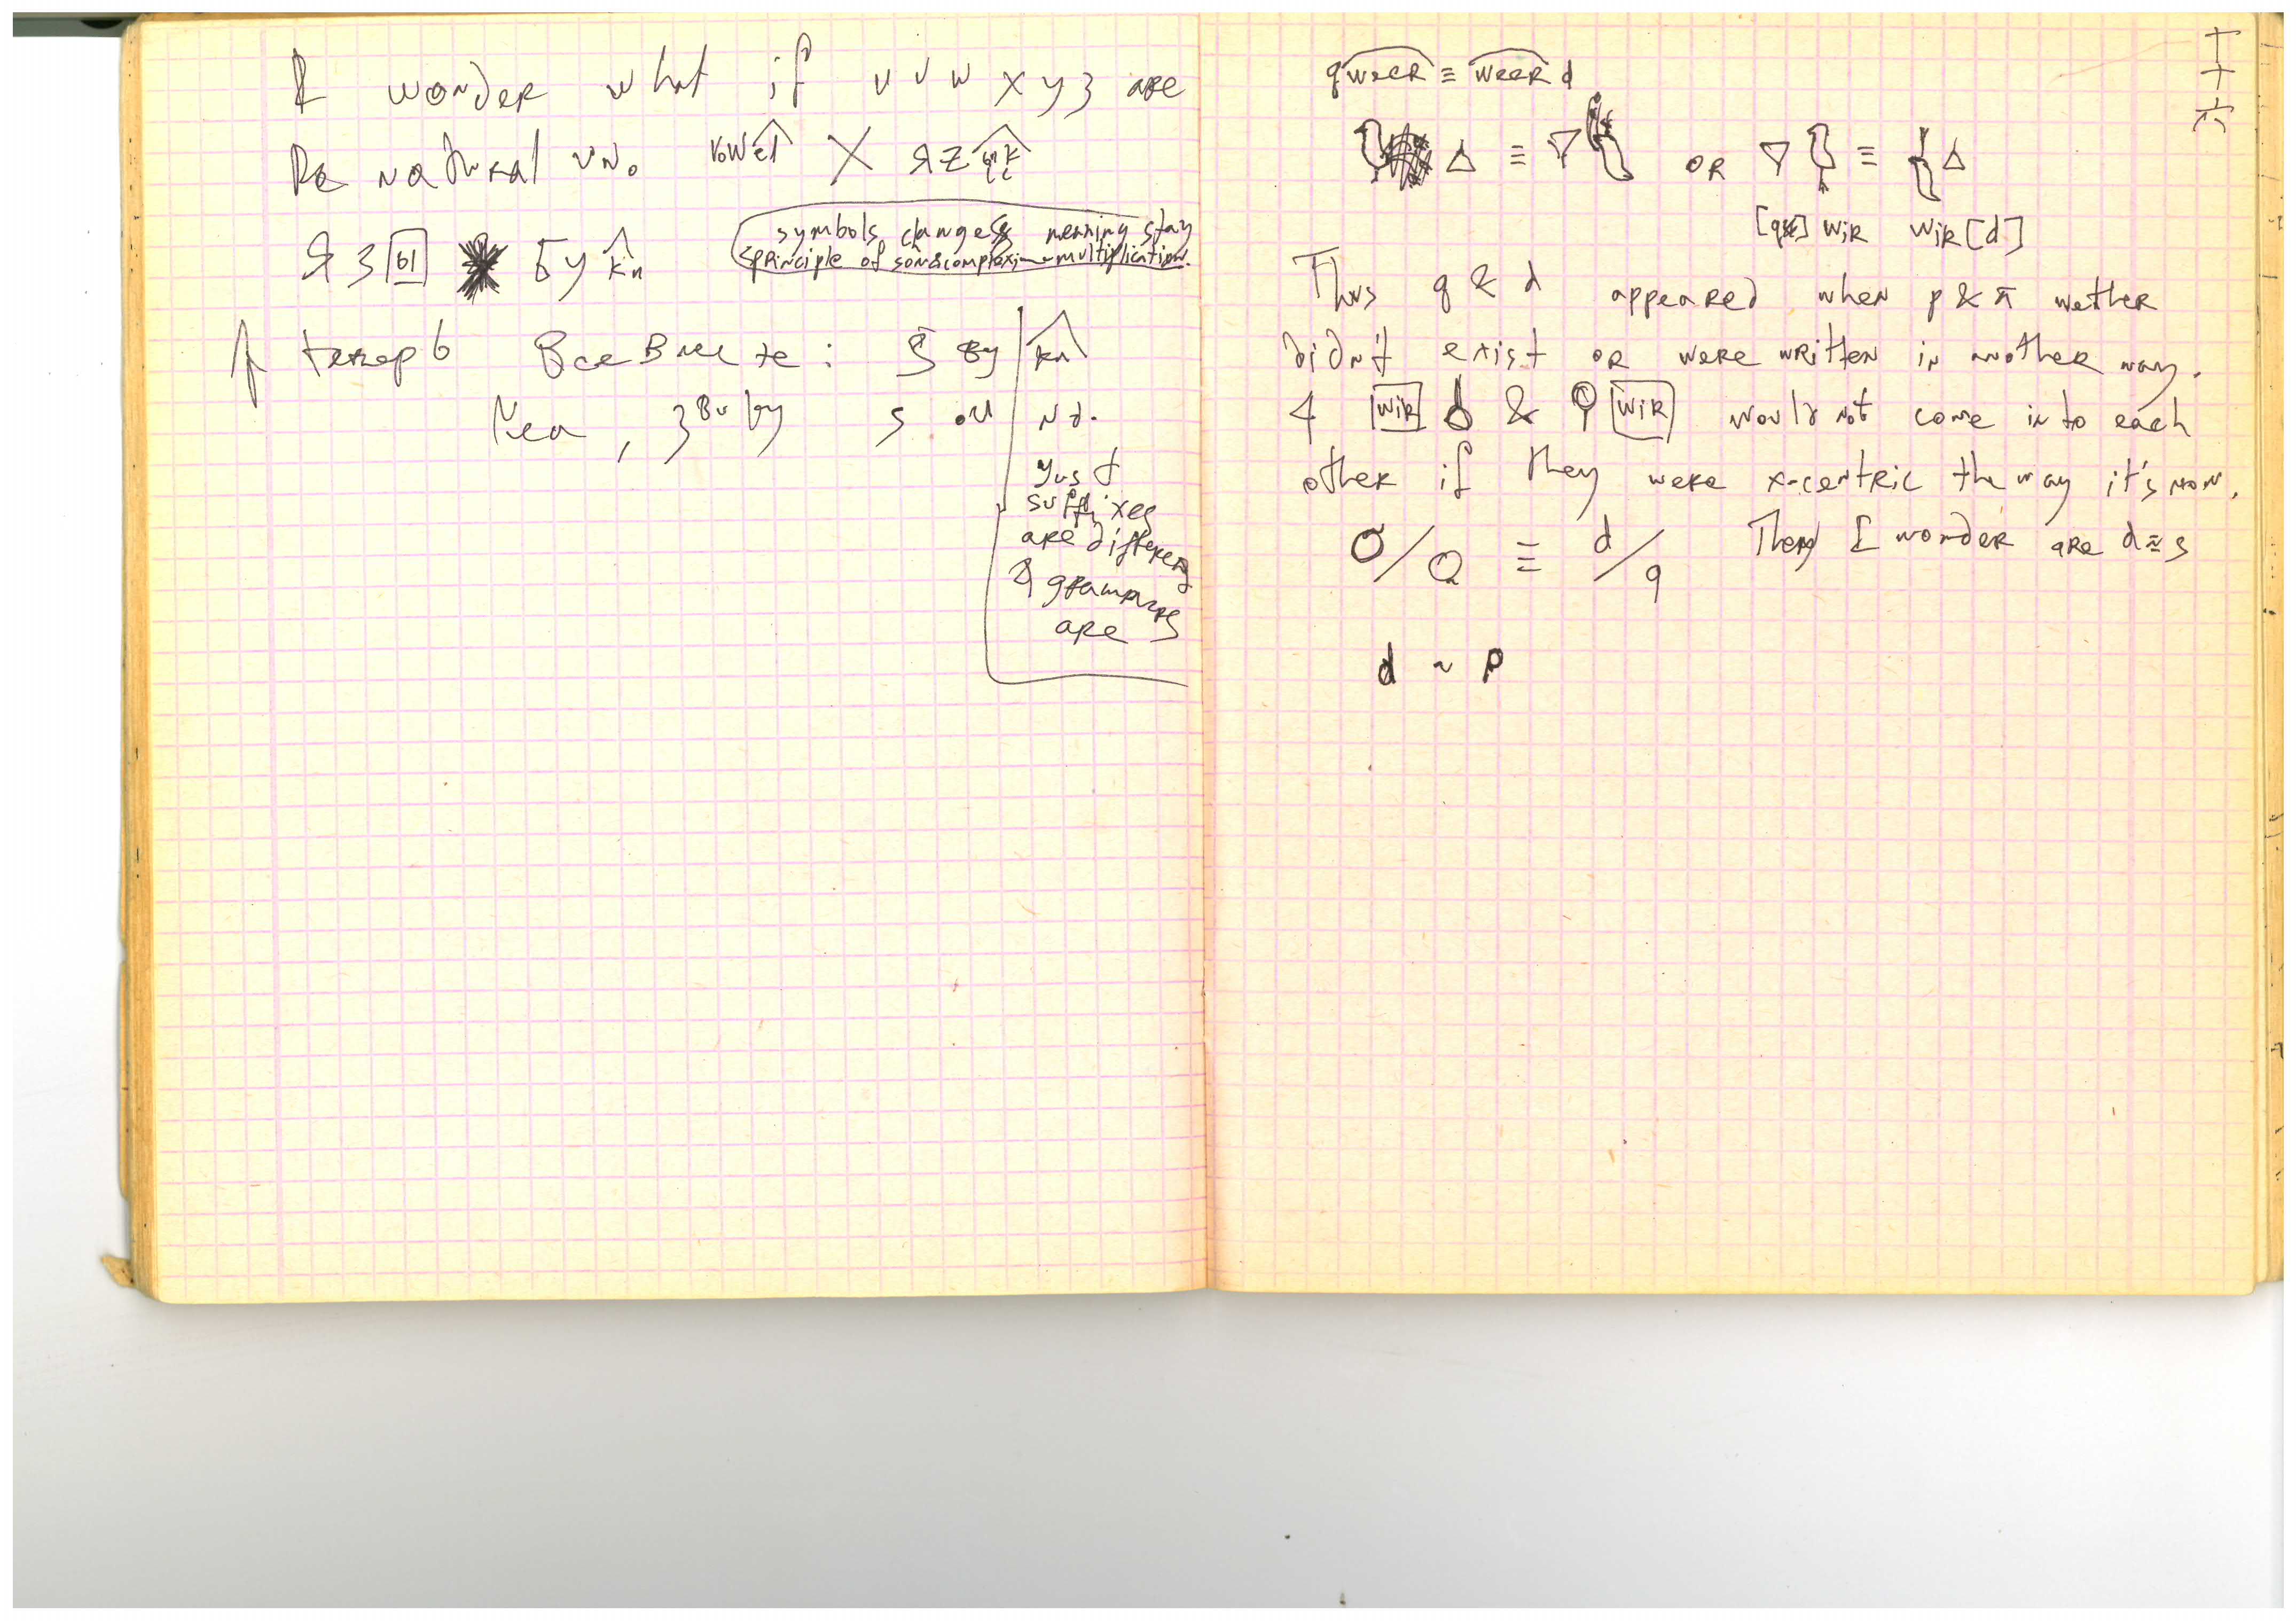 I wonder what if u v w x y z are
the natural un. vowel X язык
Я З ы Бу кв
symbols changes meaning stay
principle of son&complexi~multiplication.
А теперь все вместе: З Бу кв
Неа, зв

just
suffixes
are different
& grammars
are
十
六
qweer ≡ weer d
△ ≡ ▽ OR ▽ ≡ △
[q] wir wir [d]
Thus q & d appeared when p & π wether
didn't exist or were written in another way.
wir & wir would not come into each
other if they were x-centric the way it's now.
O/Q ≡ d/q Then I wonder are d≈s
d ~ p